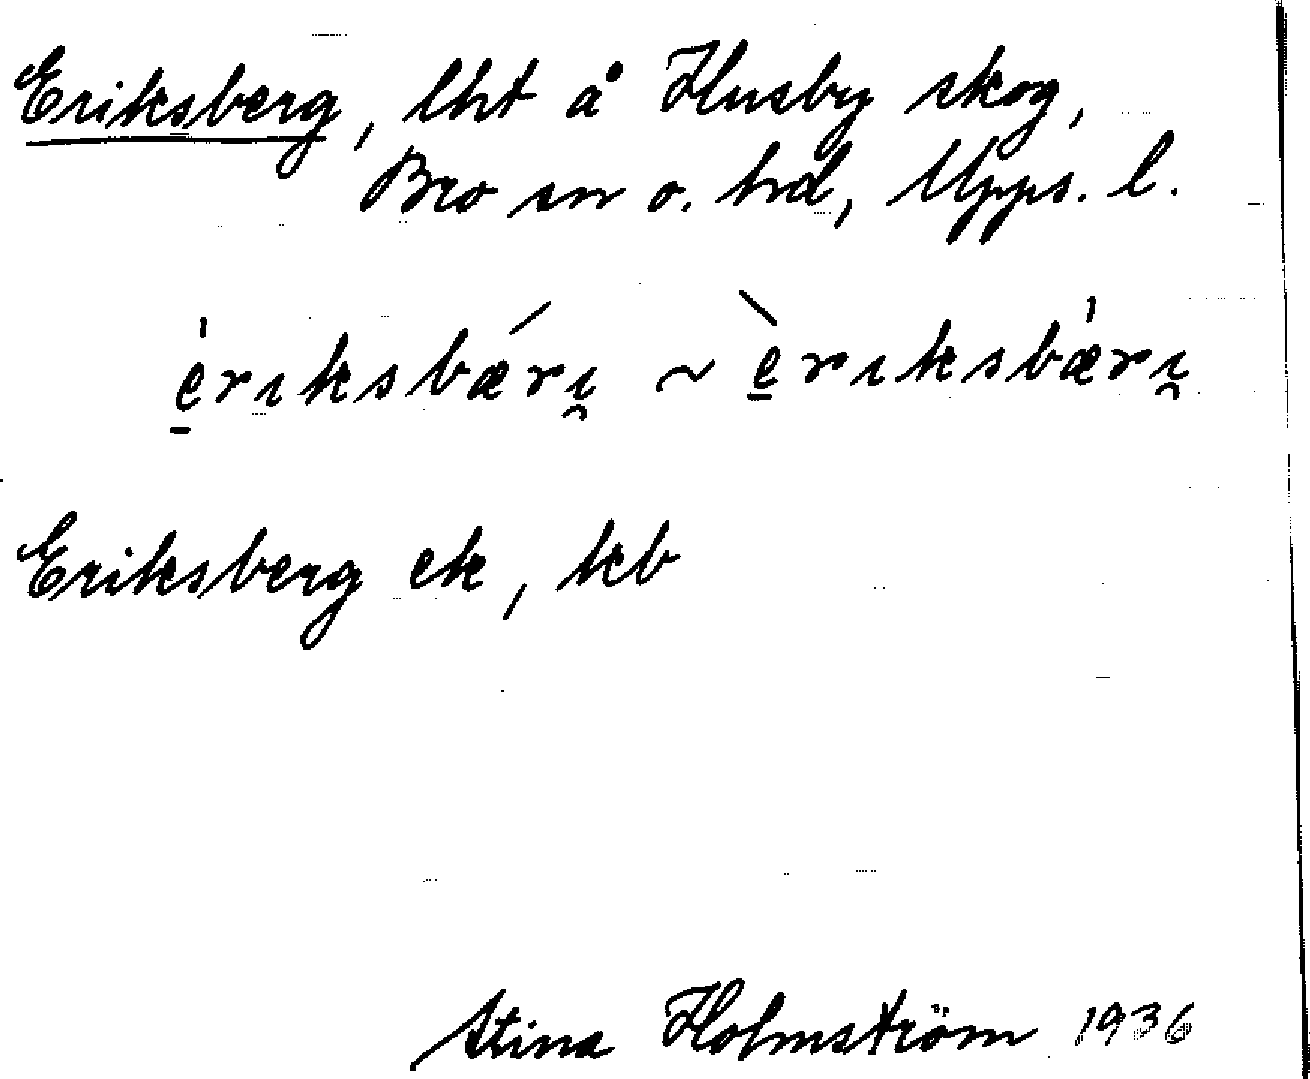 Eriksberg, lht å Husby skog,
Bro sn o. hd, Upps. l.
e̲̍rıksbǽrı̯ ~ è̲rıksbæ̍rı̯
Eriksberg ek, kb
Stina Holmström 1936